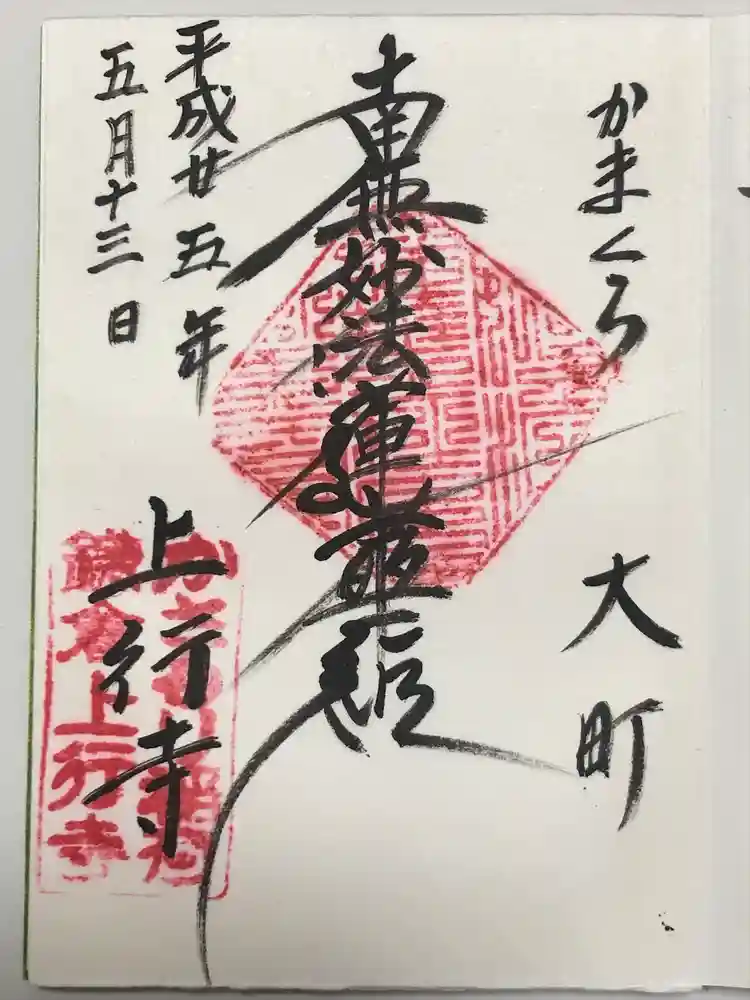 かまくら
大町
南無妙法蓮華経
平成廿五年
五月十三日
上行寺
鎌倉上行寺